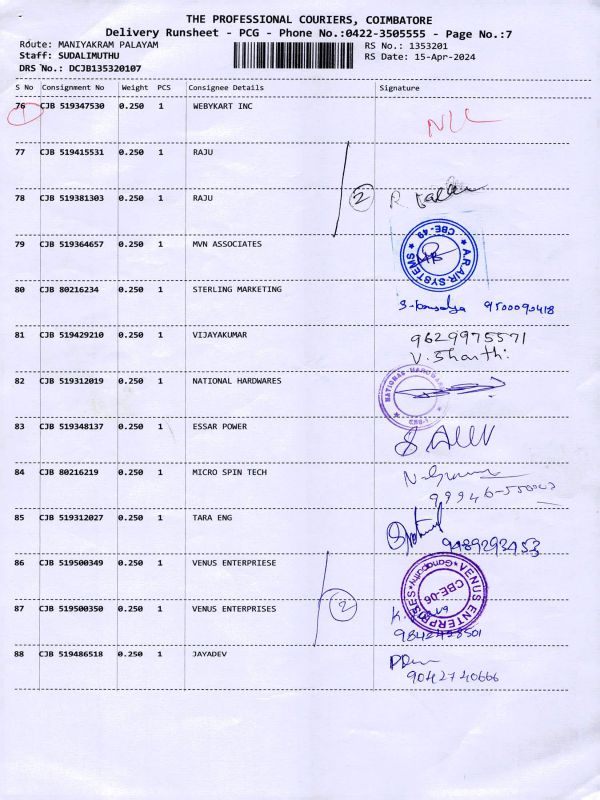 THE PROFESSIONAL COURIERS, COIMBATORE
Delivery Runsheet - PCG - Phone No.:0422-3505555 - Page No.:7
Route: MANIYAKRAM PALAYAM RS No.: 1353201
Staff: SUDALIMUTHU RS Date: 15-Apr-2024
DRS No.: DCJB135320107
S No Consignment No Weight PCS Consignee Details Signature
76 CJB 519347530 0.250 1 WEBYKART INC
1
NIL
77 CJB 519415531 0.250 1 RAJU
78 CJB 519381303 0.250 1 RAJU
2 R
79 CJB 519364657 0.250 1 MVN ASSOCIATES
A.R AIR SYSTEMS ★ CBE-49 ★
80 CJB 80216234 0.250 1 STERLING MARKETING
9500090418
81 CJB 519429210 0.250 1 VIJAYAKUMAR 9629975571
V. Shanthi
82 CJB 519312019 0.250 1 NATIONAL HARDWARES
NATIONAL
83 CJB 519348137 0.250 1 ESSAR POWER
84 CJB 80216219 0.250 1 MICRO SPIN TECH
99946-550003
85 CJB 519312027 0.250 1 TARA ENG
9489293453
86 CJB 519500349 0.250 1 VENUS ENTERPRIESE
VENUS ENTERPRISES ★ Ganapathy ★ CBE-06
87 CJB 519500350 0.250 1 VENUS ENTERPRISES 2
9842458501
88 CJB 519486518 0.250 1 JAYADEV
9042740666